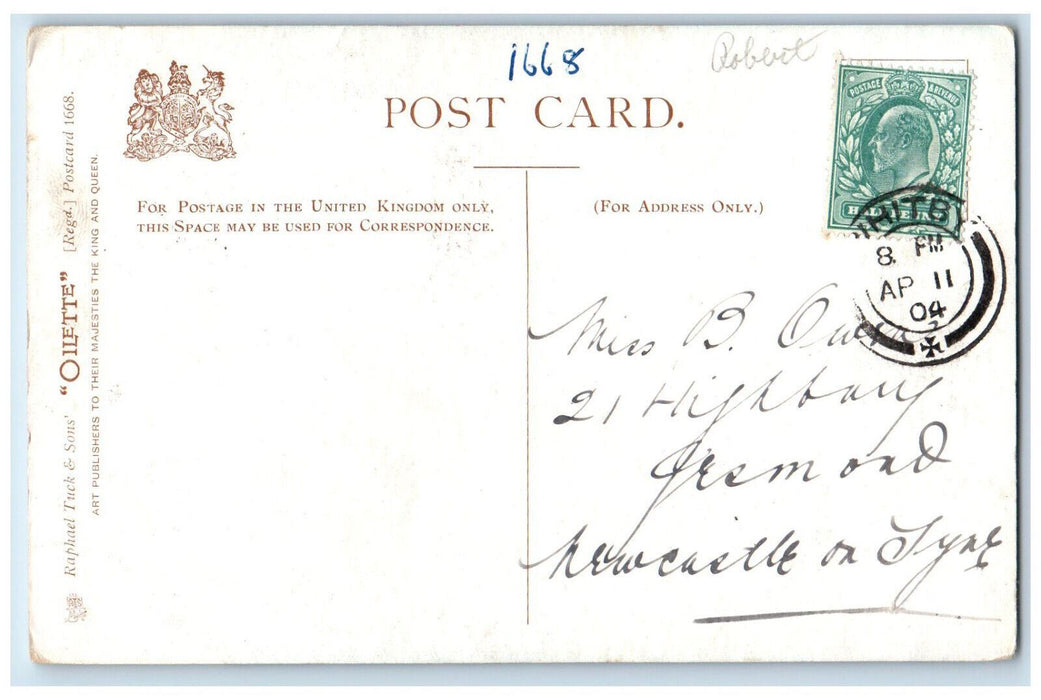 1668
Robert
POST CARD.
FOR POSTAGE IN THE UNITED KINGDOM ONLY,
THIS SPACE MAY BE USED FOR CORRESPONDENCE.
(FOR ADDRESS ONLY.)
POSTAGE & REVENUE
WHITBY
8 PM
AP 11
04
Miss B.
21 Highbury
Jesmond
Newcastle on Tyne
Raphael Tuck & Sons' "OILETTE" [Regd.] Postcard 1668.
ART PUBLISHERS TO THEIR MAJESTIES THE KING AND QUEEN.